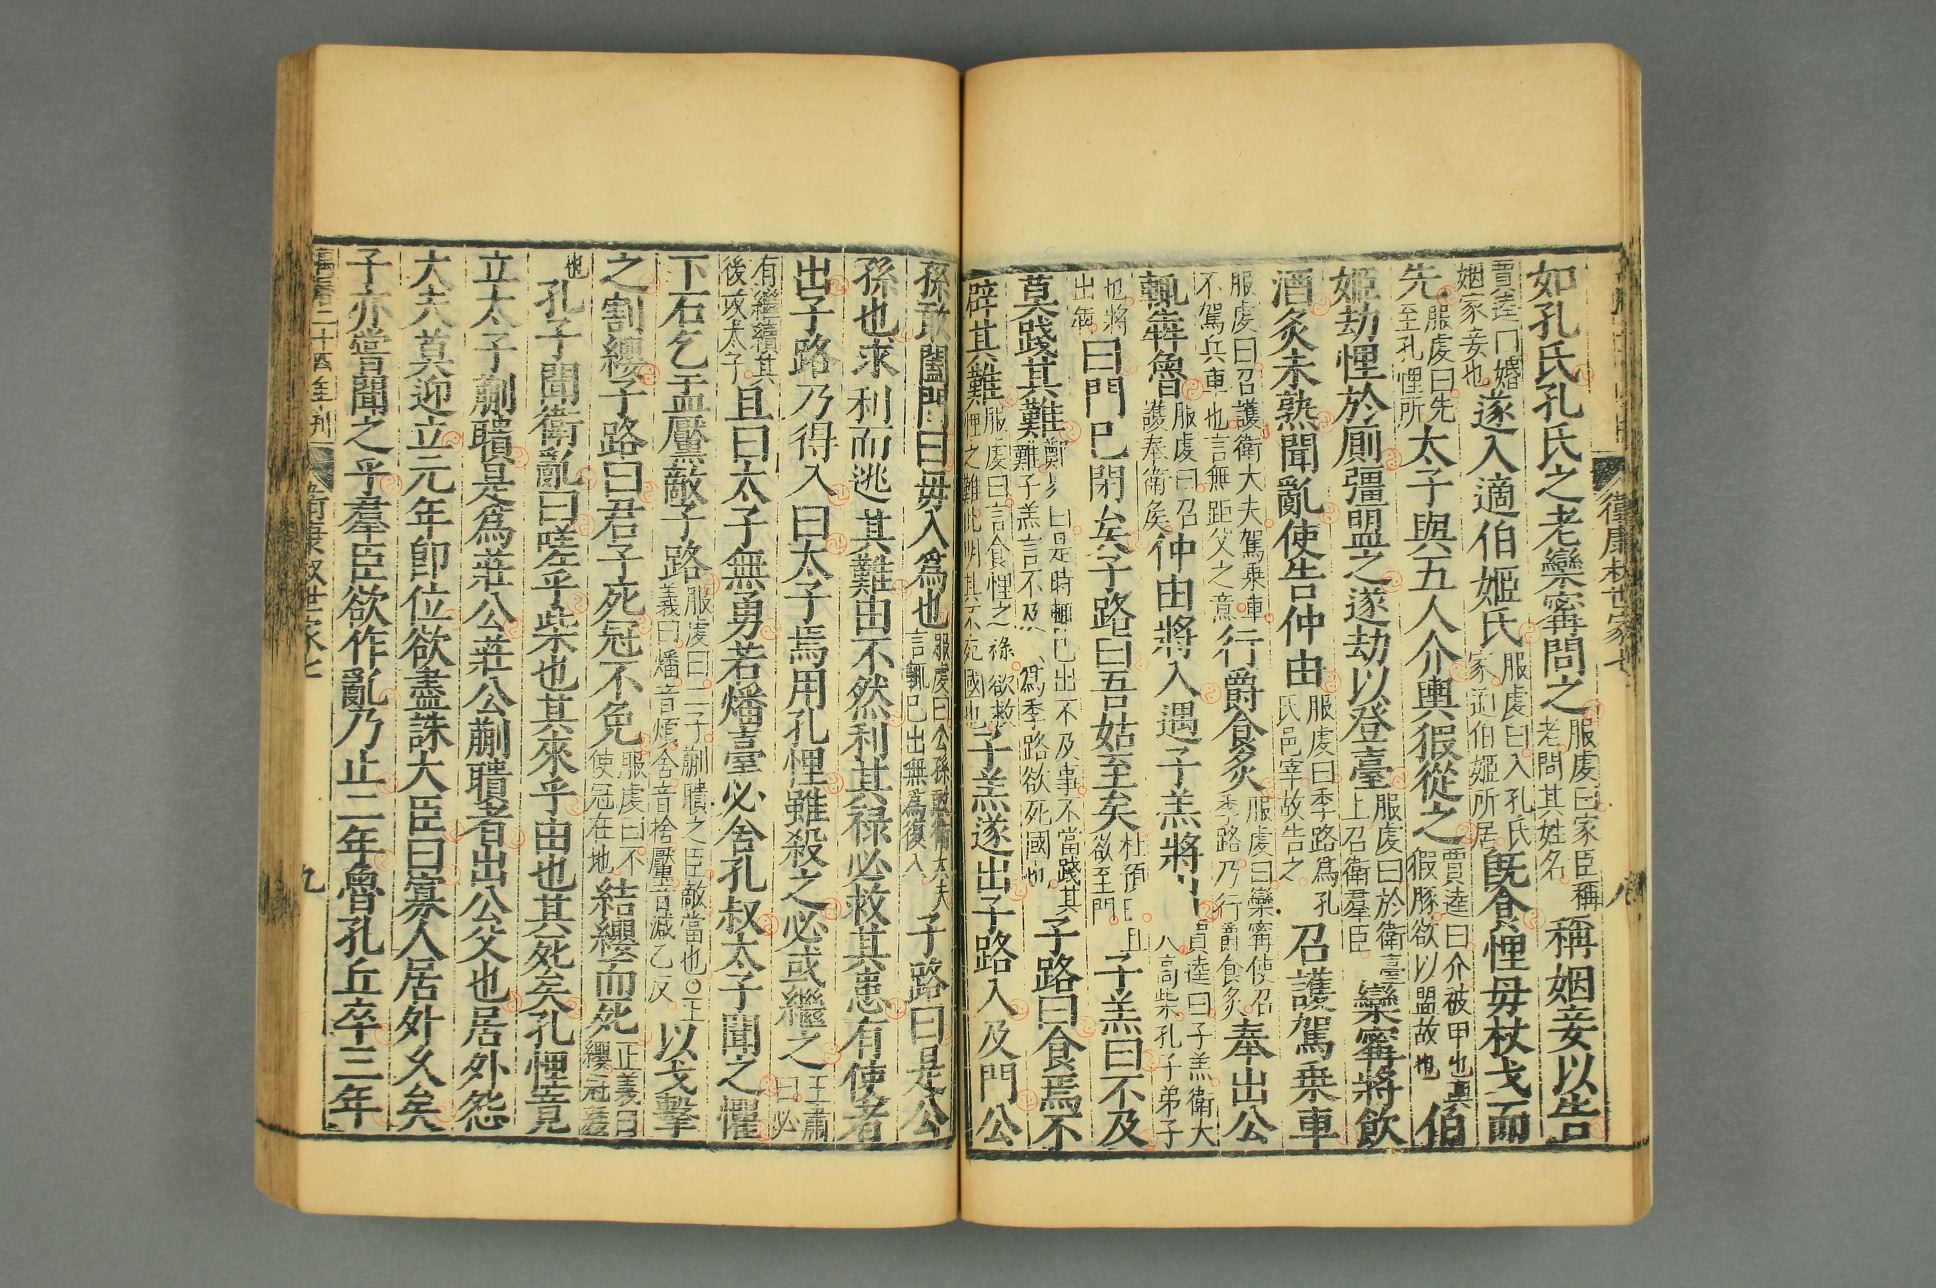 如孔氏孔氏之老欒甯問之服虔曰家臣稱老問其姓名稱姻妾以告
賈逵曰婚姻家妾也遂入適伯姬氏服虔曰入孔氏家適伯姬所居既食悝母杖戈而
先服虔曰先至孔悝所太子與五人介輿猳從之賈逵曰介被甲也輿猳豚欲以盟故也伯
姬劫悝於厠彊盟之遂劫以登臺服虔曰於衞臺上召衞羣臣欒甯將飲
酒炙未熟聞亂使告仲由服虔曰季路爲孔氏邑宰故告之召護駕乘車
服虔曰召護衞大夫駕乘車不駕兵車也言無距父之意行爵食炙服虔曰欒甯使召季路乃行爵食炙奉出公
輒犇魯服虔曰召護奉衞矦仲由將入遇子羔將出賈逵曰子羔衞大夫高柴孔子弟子
也將出奔曰門已閉矣子路曰吾姑至矣杜預曰且欲至門子羔曰不及
莫踐其難鄭衆曰是時輒已出不及事不當踐其難子羔言不及以爲季路欲死國也子路曰食焉不
辟其難服虔曰言食悝之祿欲救悝之難此明其不死國也子羔遂出子路入及門公
孫敢闔門曰毋入爲也服虔曰公孫敢衞大夫言輒已出無爲復入子路曰是公
孫也求利而逃其難由不然利其祿必救其患有使者
出子路乃得入曰太子焉用孔悝雖殺之必或繼之王肅曰必
有繼續其後攻太子且曰太子無勇若燔臺必舍孔叔太子聞之懼
下石乞盂黶敵子路服虔曰二子蒯聵之臣敵當也○正義曰燔音煩舍音捨黶音減乙反以戈擊
之割纓子路曰君子死冠不免服虔曰不使冠在地結纓而死正義曰纓冠緌
也孔子聞衞亂曰嗟乎柴也其來乎由也其死矣孔悝竟
立太子蒯聵是爲莊公莊公蒯聵者出公父也居外怨
大夫莫迎立元年即位欲盡誅大臣曰寡人居外久矣
子亦嘗聞之乎羣臣欲作亂乃止二年魯孔丘卒三年
衞康叔世家七
九